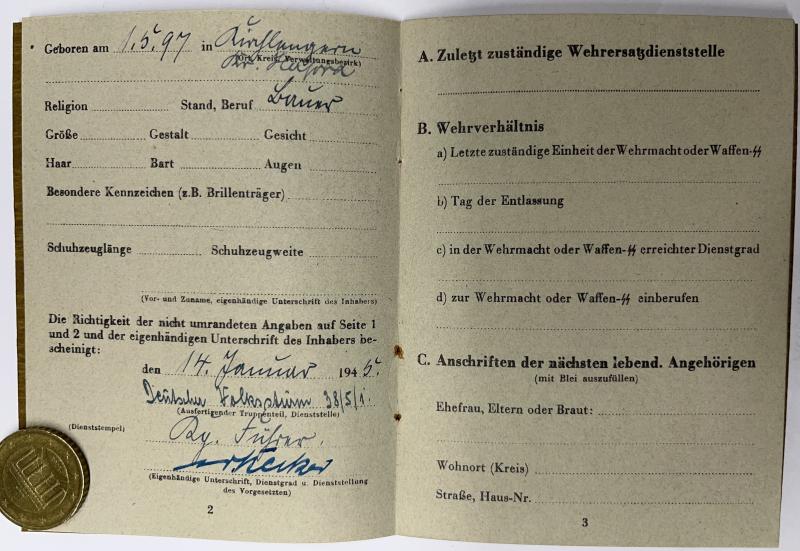 Geboren am 1.5.97 in Kirchlengern
(Ort, Kreis, Verwaltungsbezirk)
Kr. Herford
Religion Stand, Beruf Bauer
Größe Gestalt Gesicht
Haar Bart Augen
Besondere Kennzeichen (z.B. Brillenträger)
Schuhzeuglänge Schuhzeugweite
(Vor- und Zuname, eigenhändige Unterschrift des Inhabers)
Die Richtigkeit der nicht umrandeten Angaben auf Seite 1
und 2 und der eigenhändigen Unterschrift des Inhabers be-
scheinigt:
den 14. Januar 1945.
Deutscher Volkssturm 38/5/1.
(Ausfertigender Truppenteil, Dienststelle)
(Dienststempel)
Führer.
(Eigenhändige Unterschrift, Dienstgrad u. Dienststellung
des Vorgesetzten)
2
A. Zuletzt zuständige Wehrersatzdienststelle
B. Wehrverhältnis
a) Letzte zuständige Einheit der Wehrmacht oder Waffen-SS
b) Tag der Entlassung
c) in der Wehrmacht oder Waffen-SS erreichter Dienstgrad
d) zur Wehrmacht oder Waffen-SS einberufen
C. Anschriften der nächsten lebend. Angehörigen
(mit Blei auszufüllen)
Ehefrau, Eltern oder Braut:
Wohnort (Kreis)
Straße, Haus-Nr.
3